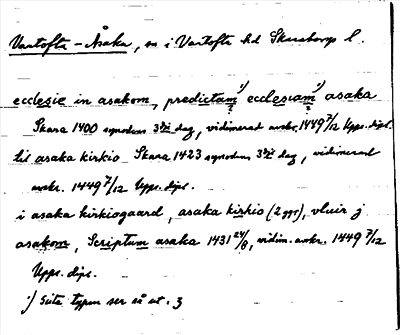 Vartofta-Åsaka, sn i Vartofta hd Skaraborgs l.
ecclesie in asakom, predictam 1) ecclesiam 1) asaka
Skara 1400 synodus 3die dag, vidimerad avskr. 1449 7/12 Upps. dipl.
til asaka kirkio Skara 1423 synodus 3die dag, vidimerad
avskr. 1449 7/12 Upps. dipl.
i asaka kirkiogaard, asaka kirkio (2 ggr), vluir j
asakom, Scriptum asaka 1431 24/8, vidim. avskr. 1449 7/12
Upps. dipl.
1) Sista typen ser så ut: 3